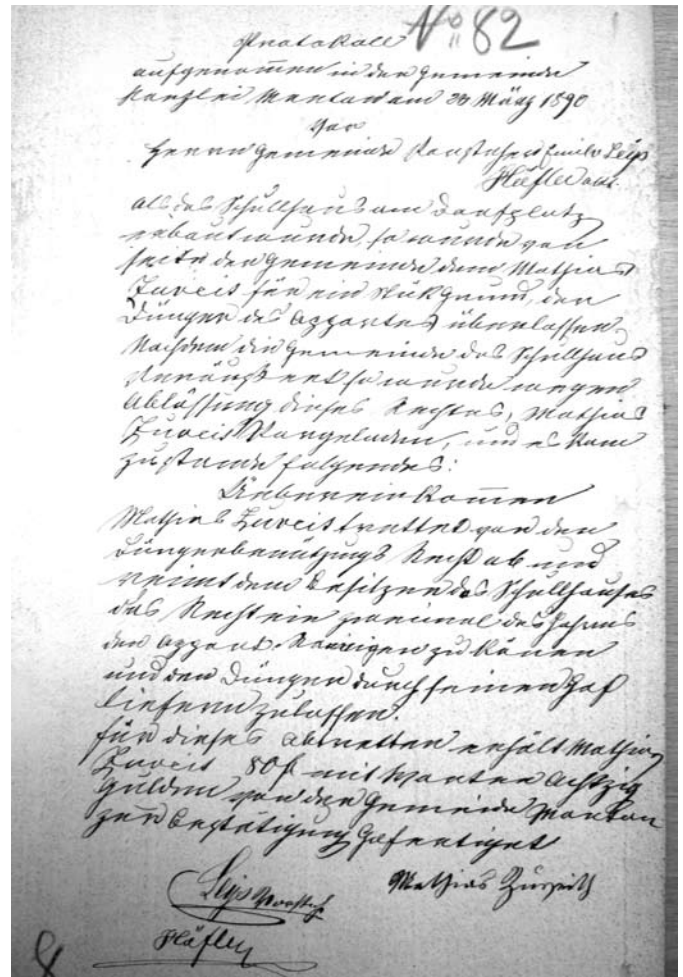 Protokoll No 82
aufgenommen in der Gemeinde
Kanzlei Montan am März 1890
Vor
Herrn Gemeinde Vorsteher Leys
Häfler
Als das Schullhaus am Dorfplatz
erbaut wurde, so wurde von
seite der Gemeinde dem Mathias
Zureit für ein Stük Grund, der
Dünger des Appartes überlassen.
Nachdem die Gemeinde das Schullhaus
Veräußert so wurde wegen
Ablössung dieses Rechtes, Mathias
Zureit Vorgeladen, und es kam
zustande folgendes:
Uebereinkommen
Mathias Zureit trettet von den
Düngerbenützungs Recht ab und
reimt dem Besitzer des Schullhauses
das Recht ein zweimal des Jahres
den Appart. zu könen
und den Dünger durch seinen Hof
liefern zulassen.
für dieses abtretten erhält Mathias
Zureit 80 fl mit Worten Achtzig
Gulden von der Gemeinde Montan
zur Bestätigung Gefertiget
Leys Vorsteh Mathias Zurzeith
Häfler